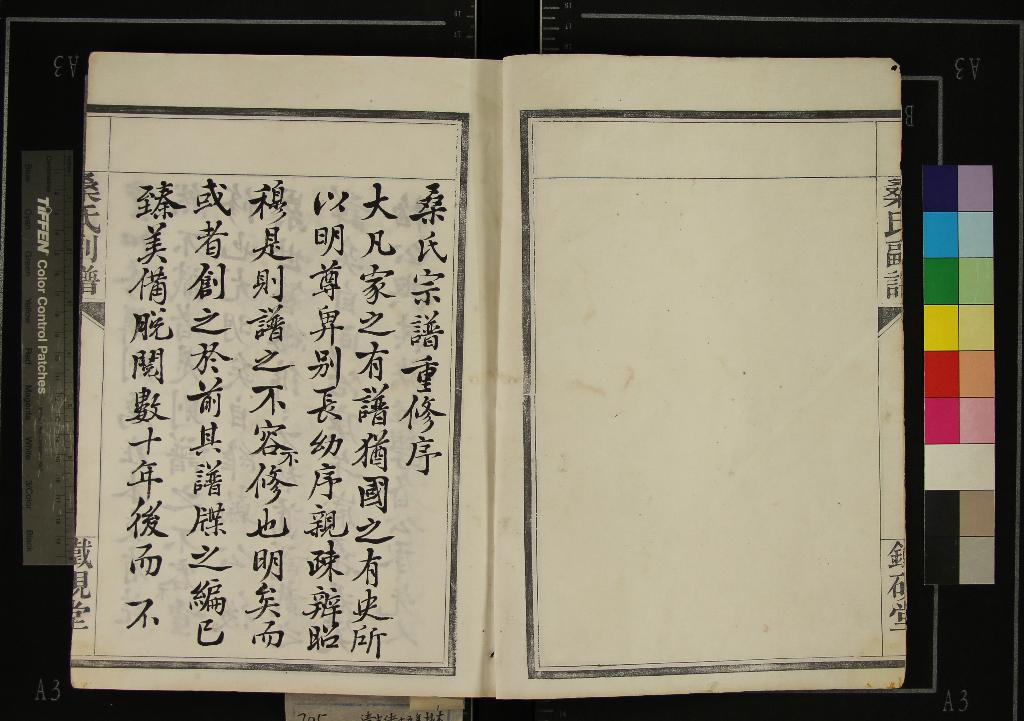 桑氏宗譜重修序
大凡家之有譜猶國之有史所
以明尊卑别長幼序親疎辨昭
穆是則譜之不容不修也明矣而
或者創之於前其譜牒之編已
臻美備脱閱數十年後而不
桑氏副譜
鐵硯堂
TIFFEN Color Control Patches
A3
A3
A3
A3
B